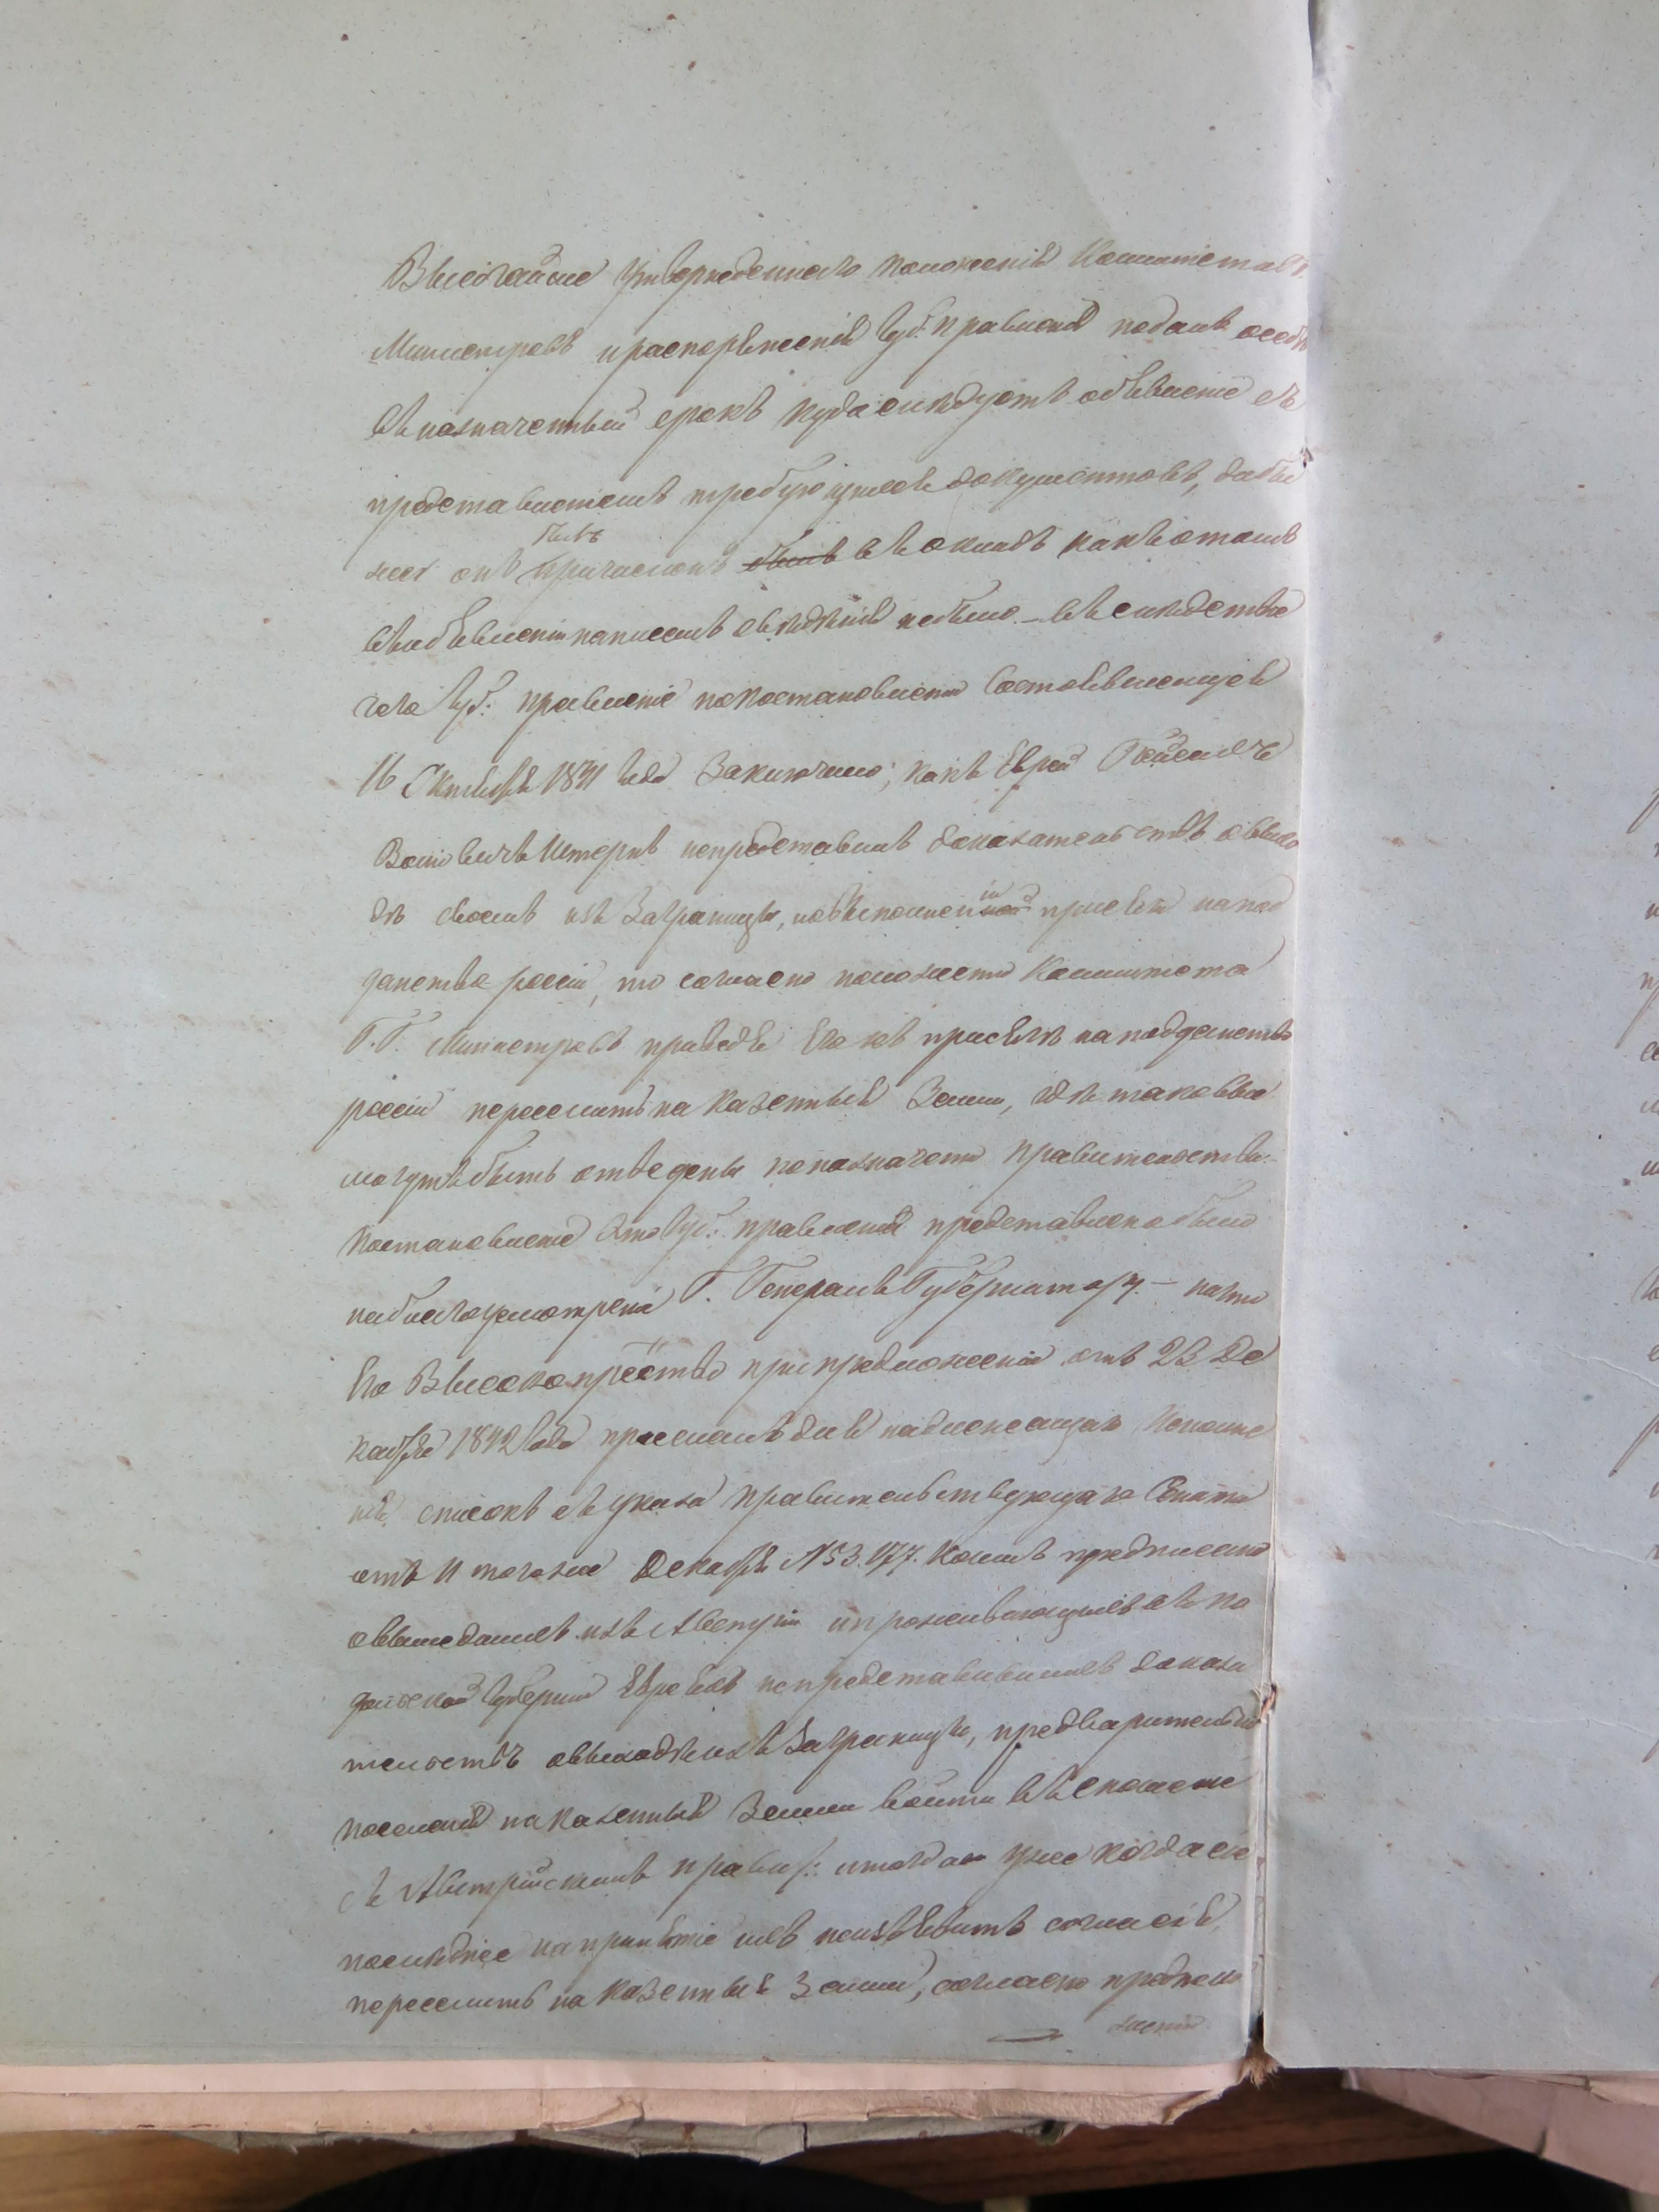 Высочайше Утвержденнаго положенія Комитета Г.
Министровъ и распоряженія Губ: Правленія подалъ особу
въ назначенный срокъ куда слѣдуетъ объявленіе съ
представленіемъ требующихся документовъ, дабы
же онъ былъ причисленъ въ окладъ какъ о томъ
въ объявленіи написалъ свѣдѣнія небыло. – въ слѣдствіе
чего Губ: правленіе попостановленію Состоявшемуся
16 Октября 1841 года Заключило; какъ Еврей
Штернъ непредставилъ доказательствъ овыхо
дѣ своемъ изъ Заграницы, присягѣ на под
данство россіи, то согласно положенію Комитета
Г.Г. Министровъ приведя Его къ присягѣ на подданство
россіи переселить на Казенныя Земли, гдѣ таковыя
могутъ быть отведены поназначенію Правительства.–
Постановленіе Это Губ: правленія представлено было
наблагоусмотреніе Г. Генералъ Губернатору. – на что
Его Высокопре́ство припредложеніи отъ 23 Де
кабря 1842 года прислалъ для надлежащаго Исполне
нія списокъ съ указа Правительствующаго Сената
отъ 11 тогоже Декабря № 53.177. коимъ предписано
овышедшихъ изъ Австріи ипроживающихъ въ По
дольской Губерніи Евреяхъ непредставившихъ доказа
тельствъ овыходѣ изъ Заграницы, предварительно
поселенія на казенныя Земли войти въ сношеніе
съ Австрійскимъ правит: итогда уже когда сіе
послѣднее на принятіе ихъ неизъявитъ согласія,
переселить на казенныя Земли, согласно предполо
женію